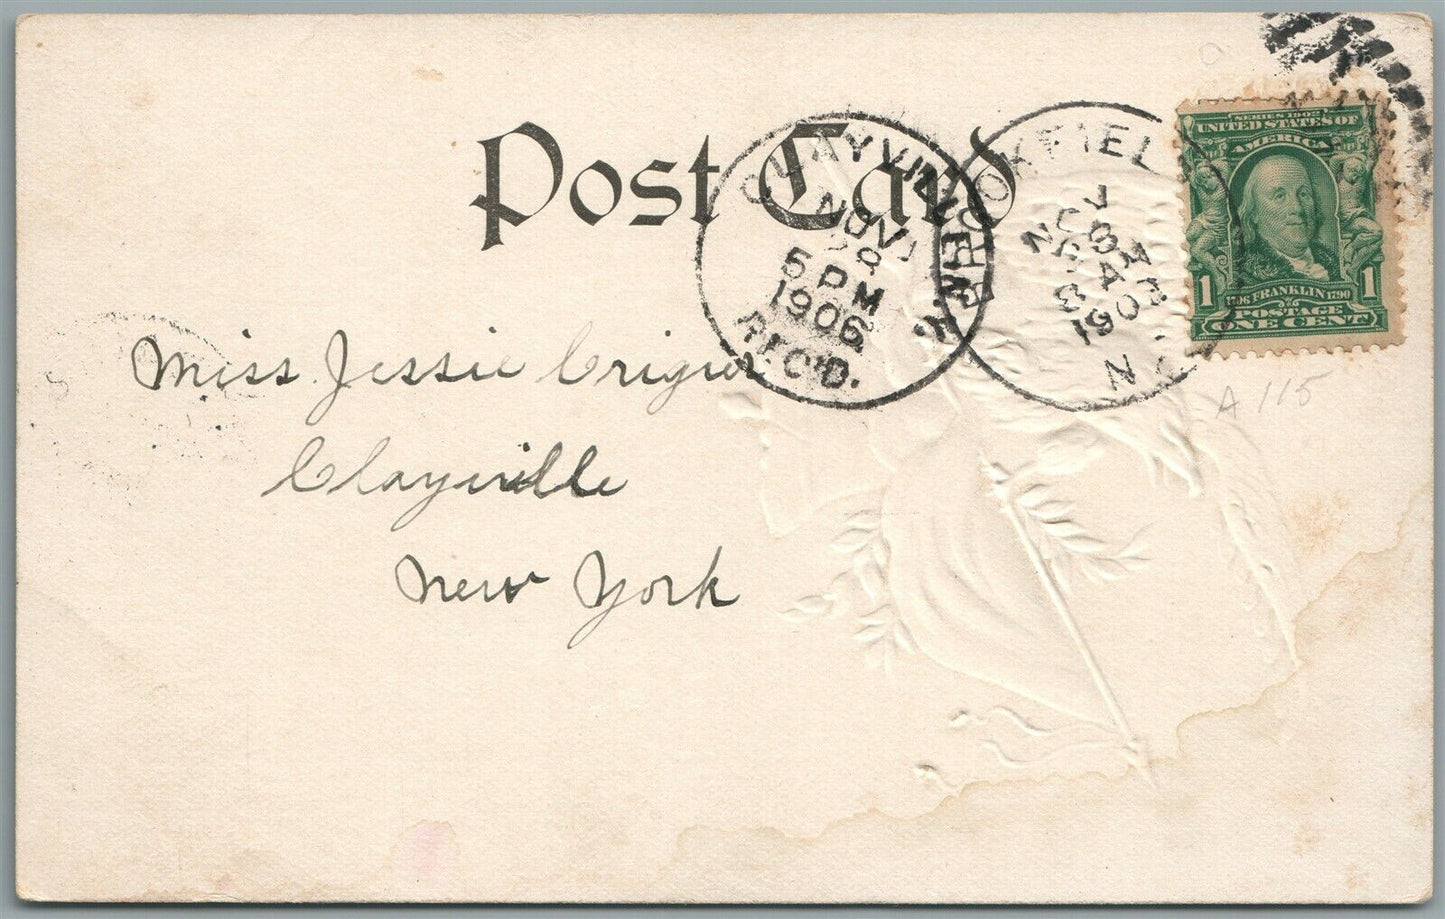 Post Card
CLAYVILLE N.Y.
NOV
5 PM
1906
REC'D.
BROOKFIELD
NOV
8 A
N
SERIES 1902
UNITED STATES OF
AMERICA
1 1
1706 FRANKLIN 1790
POSTAGE
ONE CENT
A 115
Miss Jessie Crigier
Clayville
New York